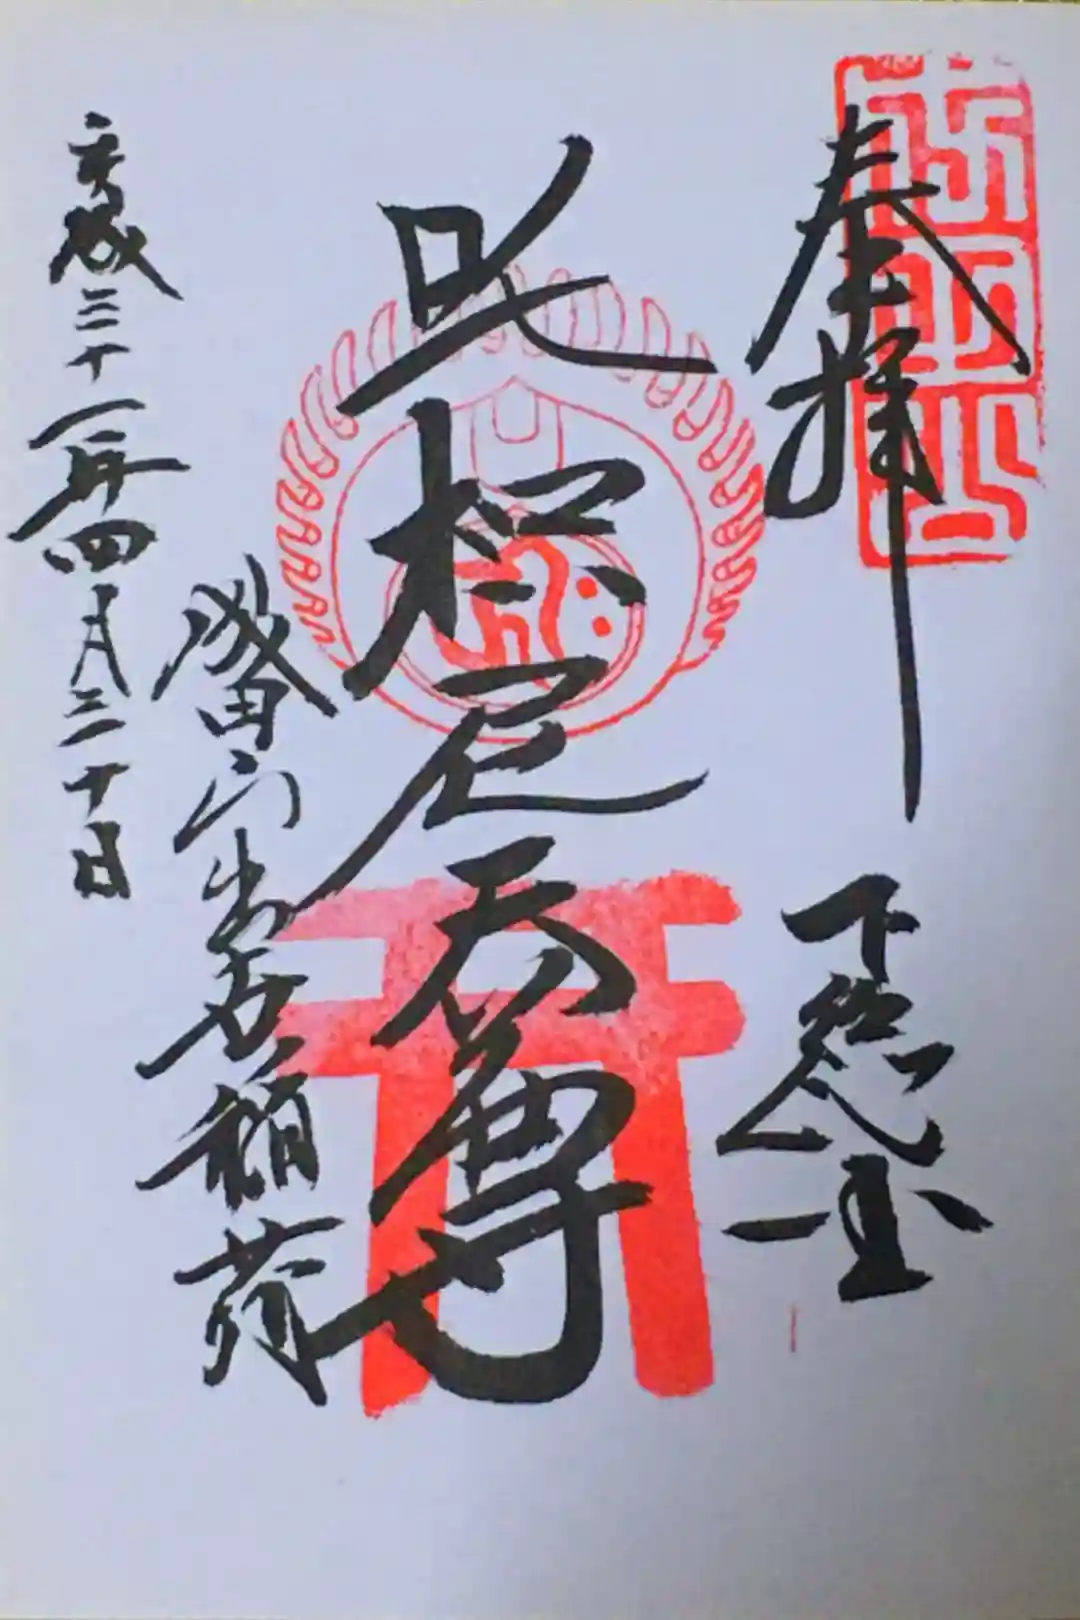 成田山
奉拝 下総国
吒枳尼天尊
成田山出世稲荷
平成三十一年四月三十日